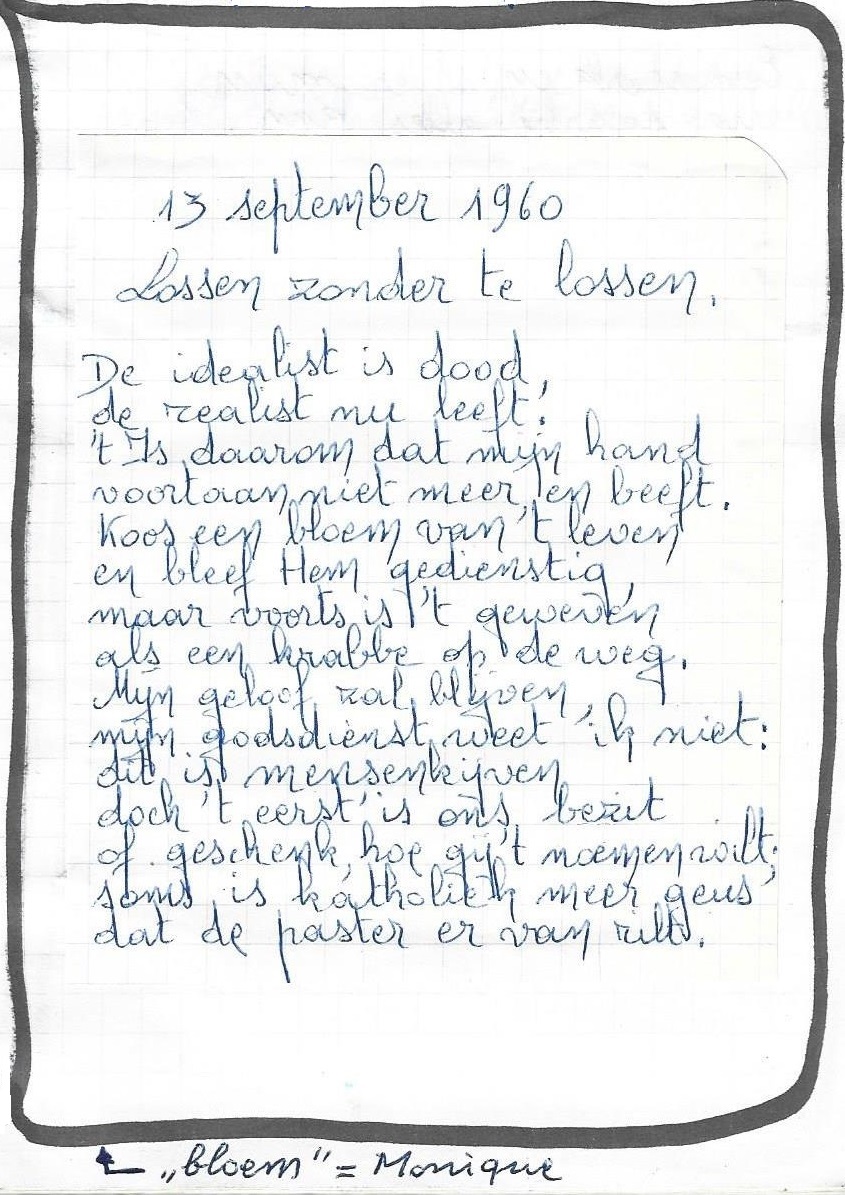 13 september 1960
Lossen zonder te lossen.
De idealist is dood,
de realist nu leeft!
't Is daarom dat mijn hand
voortaan niet meer en beeft.
Koos een bloem van 't leven
en bleef Hem gedienstig,
maar voorts is 't geweven
als een krabbe op de weg.
Mijn geloof zal blijven,
mijn godsdienst weet ik niet:
dit is mensenkijven
doch 't eerst is ons bezit
of geschenk, hoe gij 't noemen wilt;
soms is katholiek meer geus
dat de paster er van rilt.
"bloem" = Monique